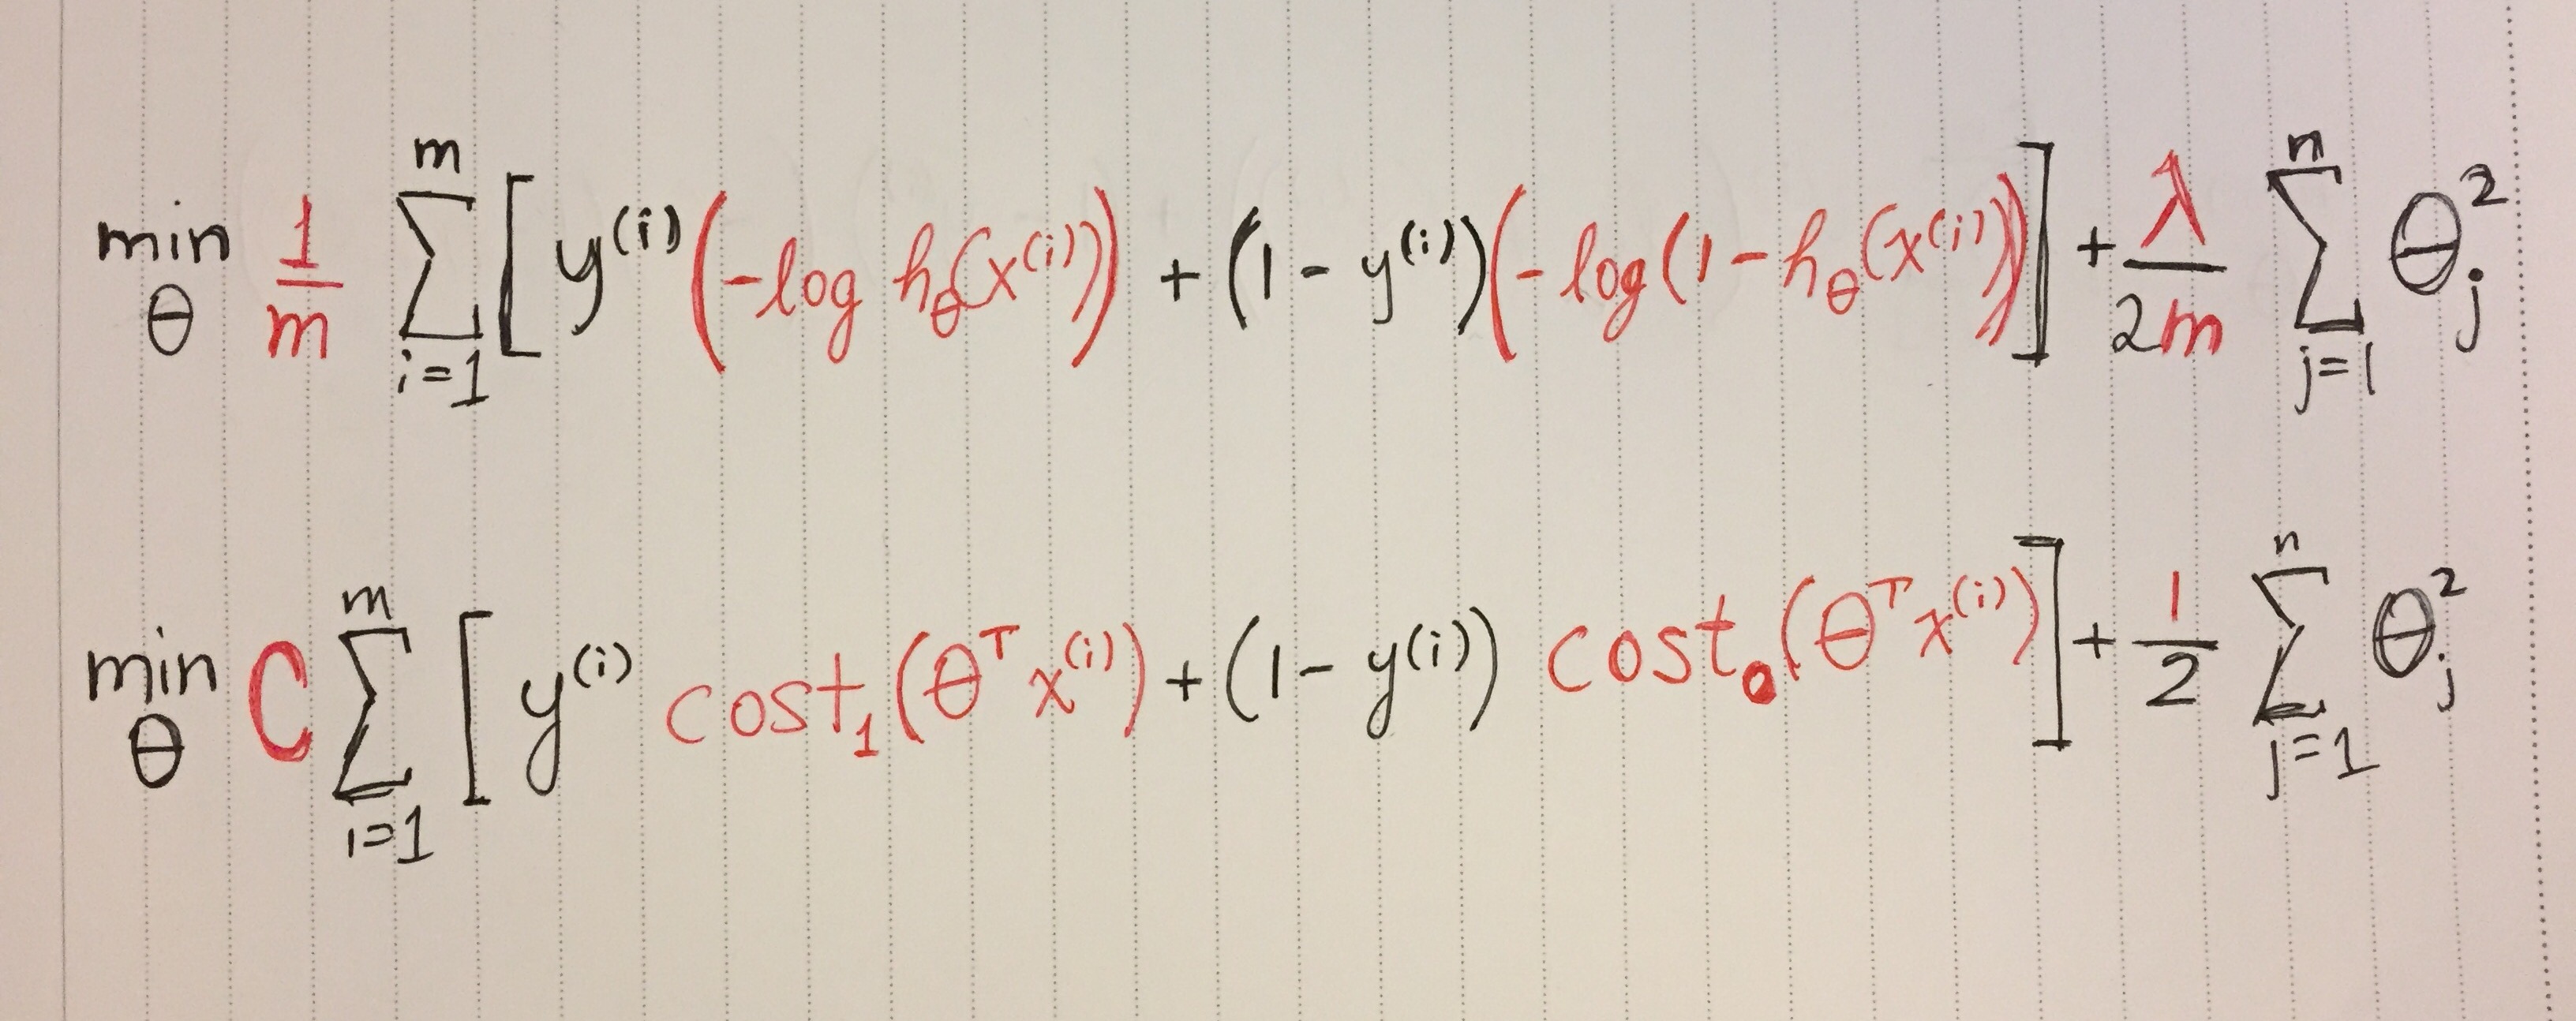 min_θ 1/m ∑_{i=1}^{m} [ y^{(i)} (-log h_θ(x^{(i)})) + (1 - y^{(i)}) (-log(1 - h_θ(x^{(i)}))) ] + λ/2m ∑_{j=1}^{n} θ_j^2
min_θ C ∑_{i=1}^{m} [ y^{(i)} cost_1(θ^T x^{(i)}) + (1 - y^{(i)}) cost_0(θ^T x^{(i)}) ] + 1/2 ∑_{j=1}^{n} θ_j^2